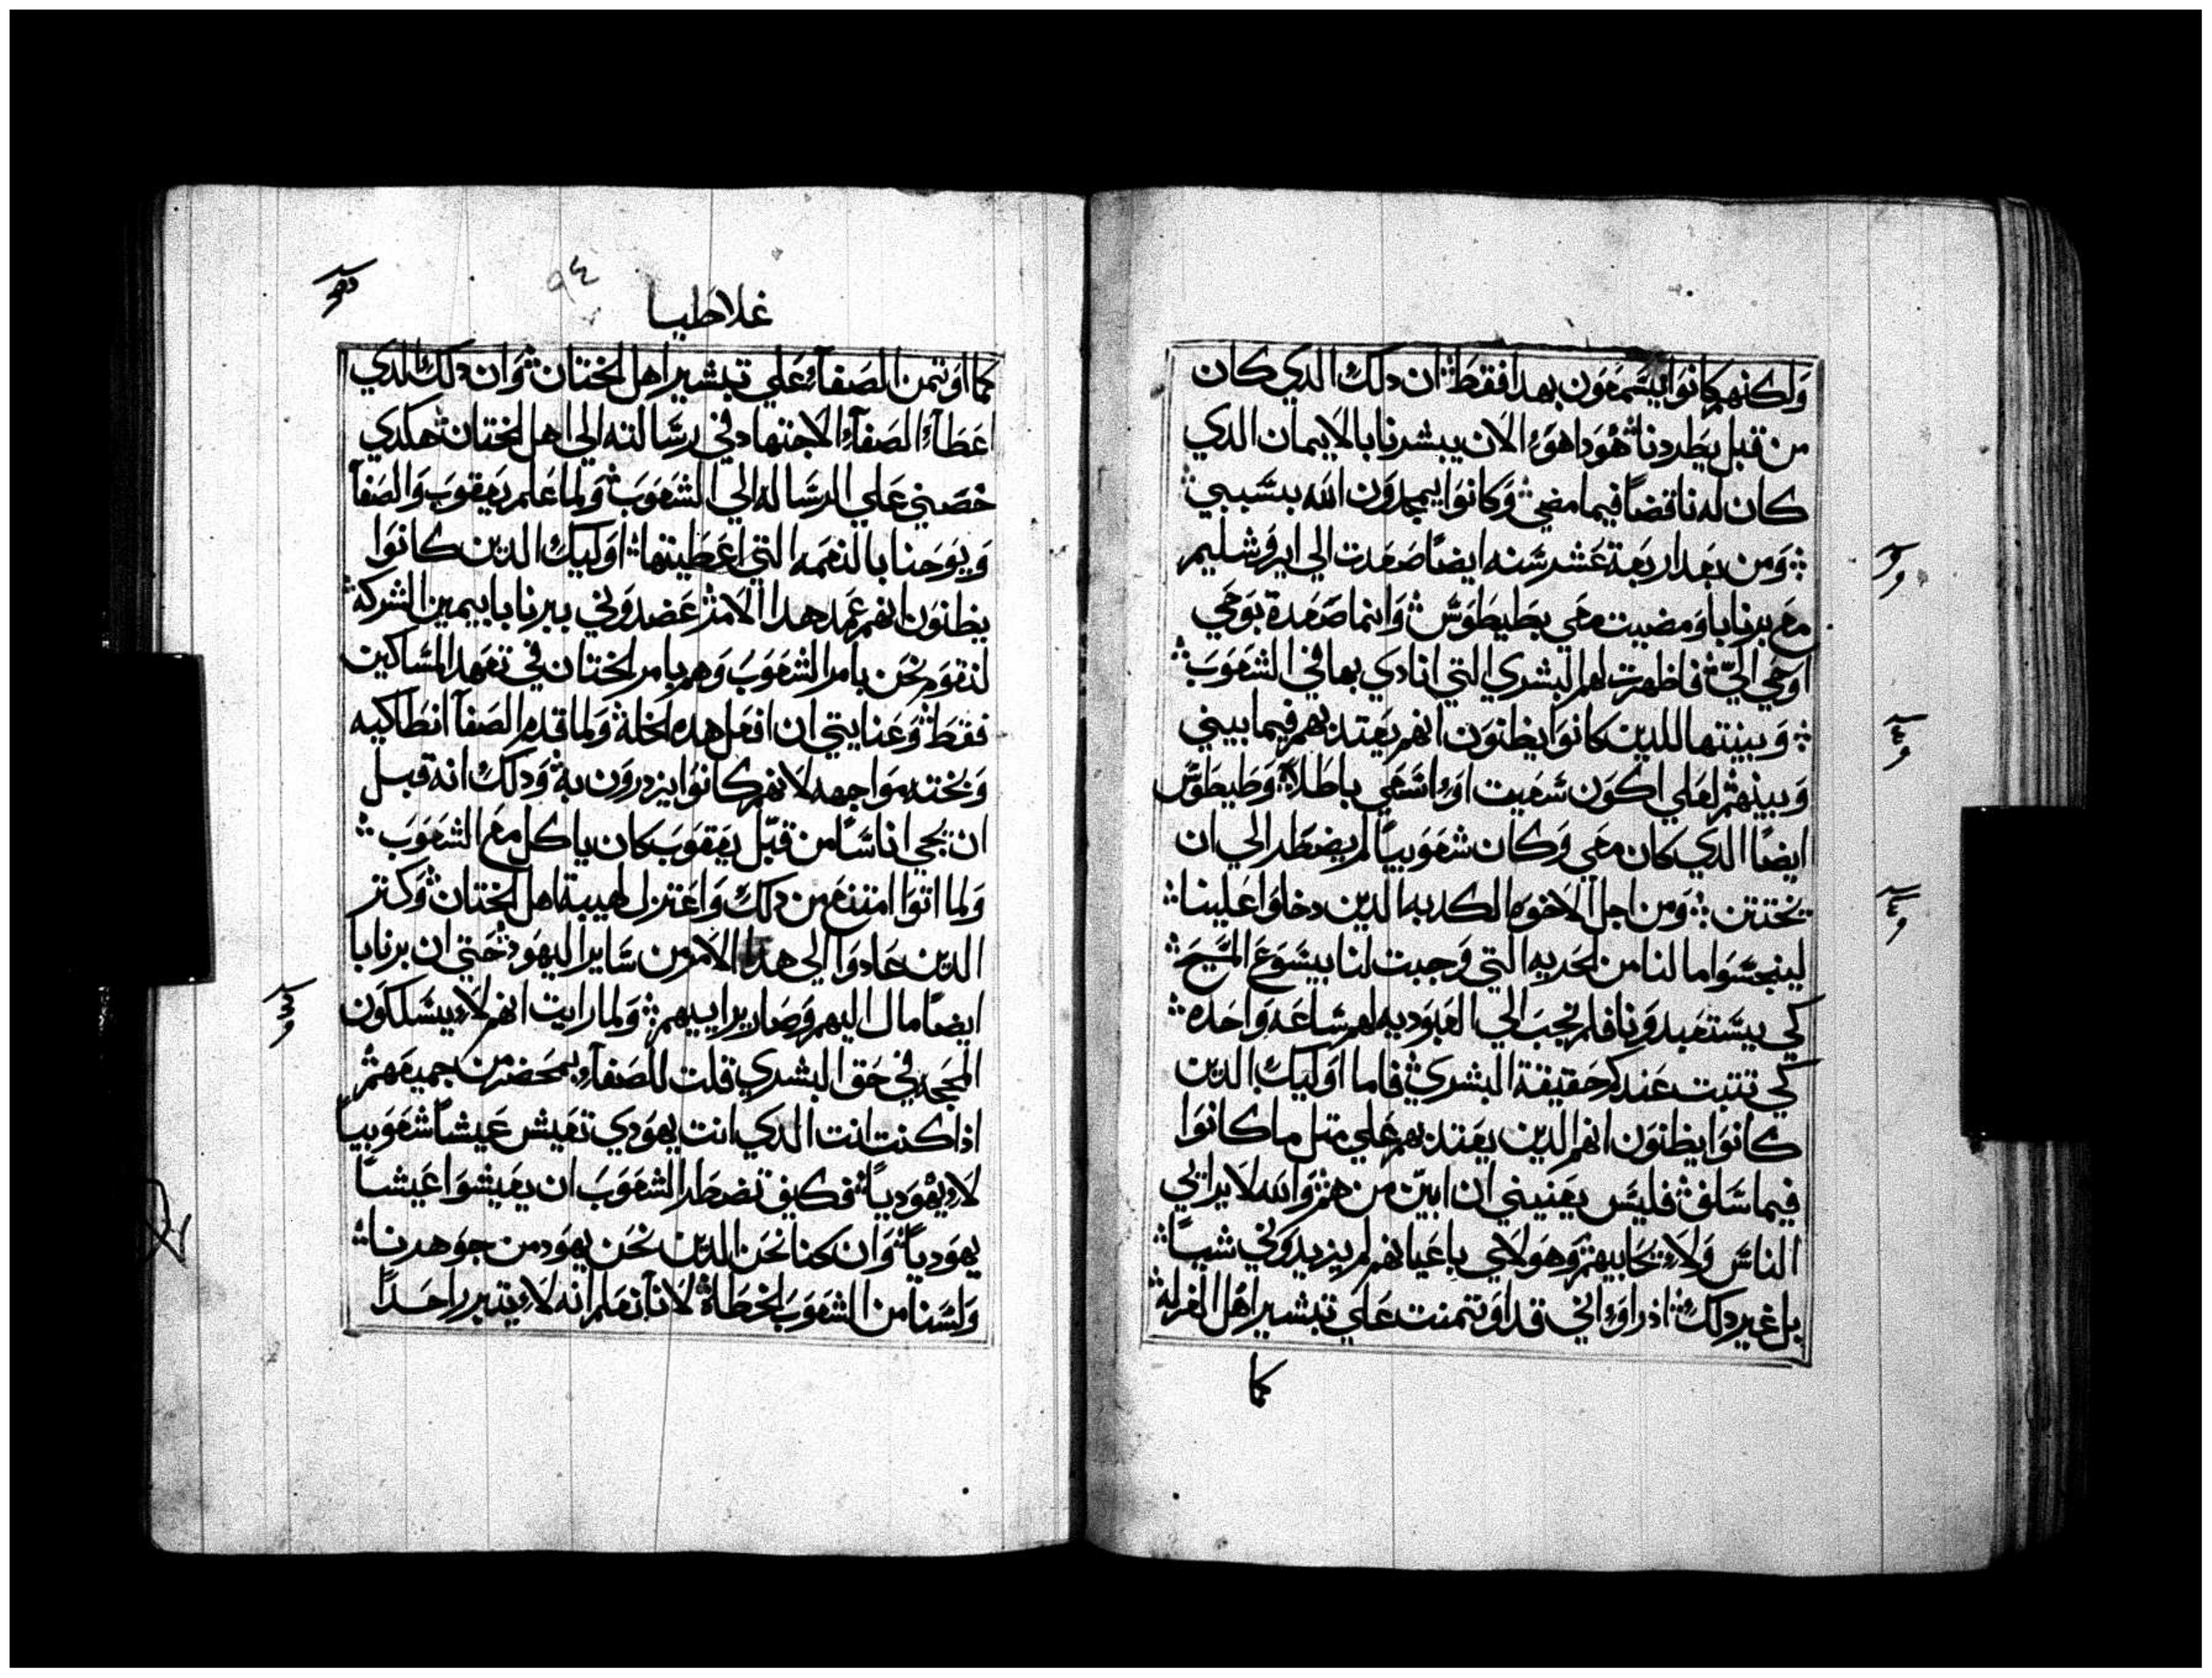 ولكنهم كانوا يسمعون بهدا فقط ان دلك الدي كان
من قبل يطردنا هودا هو الان يبشرنا بالايمان الدي
كان له ناقضاً فيما مضي وكانوا يمجدون الله بسببي
ومن بعد اربعة عشر سنه ايضاً صعدت الي ايروشليم
مع برنابا ومضيت معي بطيطوس وانما صعدة بوحي
اوحي اليّ فاظهرت لهم البشري التي انادي بها في الشعوب
وبينتها للدين كانوا يظنون انهم يعتد بهم فيما بيني
وبينهم لعلي اكون سعيت او اسعي باطلاً وطيطوس
ايضاً الدي كان معي وكان شعوبياً لم يضطر الي ان
يختتن ومن اجل الاخوه الكدبه الدين دخلوا علينا
لينجسوا ما لنا من الحريه التي وجبت لنا بيسوع المسيح
كي يستعبدونا فلم نجب الي العبوديه لهم ساعه واحده
كي تتبت عندكم حقيقة البشري فاما اوليك الدين
كانوا يظنون انهم الدين يعتد بهم علي متل ما كانوا
فيما سلف فليس يعنيني ان ابين من هم والله لا يرايي
الناس ولا يحابيهم وهولاي باعيانهم لم يزيدوني شياً
بل غير دلك اد راوا اني قد اوتمنت علي تبشير اهل الغرله
كما
غلاطيا
٩٤
كما اوتمن الصفاء علي تبشير اهل الختان وان دلك الدي
اعطاء الصفاء الاجتهاد في رسالته الي اهل الختان هكدي
خصني علي الرساله الي الشعوب ولما علم يعقوب والصفا
ويوحنا بالنعمه التي اعطيتها اوليك الدين كانوا
يظنون انهم عمد هدا الامر عضدوني ببرنابا بيمين الشركه
لنقوم نحن بامر الشعوب وهم بامر الختان في تعهد المساكين
فقط وعنايتي ان افعل هده الخلة ولما قدم الصفا انطاكيه
وبخته مواجهه لانهم كانوا يزدرون به ودلك انه قبل
ان يجي اناساً من قبل يعقوب كان ياكل مع الشعوب
ولما اتوا امتنع من دلك واعتزل لهيبة اهل الختان وكتر
الدين عادوا الي هدا الامر من ساير اليهود حتي ان برنابا
ايضاً مال اليهم وصار برايهم ولما رايت انهم لا يسلكون
المحجه في حق البشري قلت للصفاء بمحضر من جميعهم
اذا كنت انت الدي انت يهودي تعيش عيشاً شعوبياً
لا يهودياً فكيف تضطر الشعوب ان يعيشوا عيشاً
يهودياً وان كنا نحن الدين نحن يهود من جوهرنا
ولسنا من الشعوب الخطاة لانا نعلم انه لا يتبرر احداً